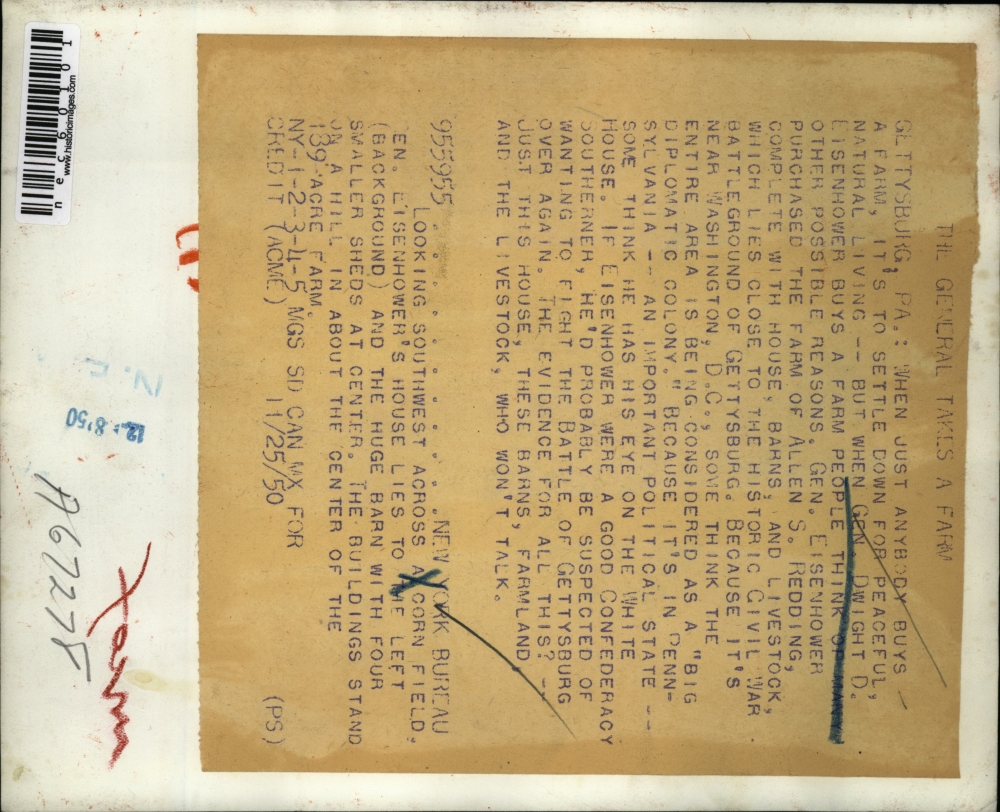 THE GENERAL TAKES A FARM
GETTYSBURG, PA.: WHEN JUST ANYBODY BUYS
A FARM, IT'S TO SETTLE DOWN FOR PEACEFUL,
NATURAL LIVING -- BUT WHEN GEN. DWIGHT D.
EISENHOWER BUYS A FARM PEOPLE THINK OF MANY
OTHER POSSIBLE REASONS. GEN. EISENHOWER
PURCHASED THE FARM OF ALLEN S. REDDING,
COMPLETE WITH HOUSE, BARNS, AND LIVESTOCK,
WHICH LIES CLOSE TO THE HISTORIC CIVIL WAR
BATTLEGROUND OF GETTYSBURG. BECAUSE IT'S
NEAR WASHINGTON, D.C., SOME THINK THE
ENTIRE AREA IS BEING CONSIDERED AS A "BIG
DIPLOMATIC COLONY." BECAUSE IT'S IN PENN-
SYLVANIA -- AN IMPORTANT POLITICAL STATE --
SOME THINK HE HAS HIS EYE ON THE WHITE
HOUSE. IF EISENHOWER WERE A GOOD CONFEDERACY
SOUTHERNER, HE'D PROBABLY BE SUSPECTED OF
WANTING TO FIGHT THE BATTLE OF GETTYSBURG
OVER AGAIN. THE EVIDENCE FOR ALL THIS? --
JUST THIS HOUSE, THESE BARNS, FARMLAND
AND THE LIVESTOCK, WHO WON'T TALK.
955955 . . . . . . . . . . NEW YORK BUREAU
LOOKING SOUTHWEST ACROSS A CORN FIELD,
EN. EISENHOWER'S HOUSE LIES TO THE LEFT
(BACKGROUND) AND THE HUGE BARN WITH FOUR
SMALLER SHEDS AT CENTER. THE BUILDINGS STAND
ON A HILL IN ABOUT THE CENTER OF THE
189-ACRE FARM.
NY-1-2-3-4-5 MGS SD CAN MX FOR
CREDIT (ACME) 11/25/50 (PS)
12. 8'50
A67278
Farm
www.historicimages.com
nec60101